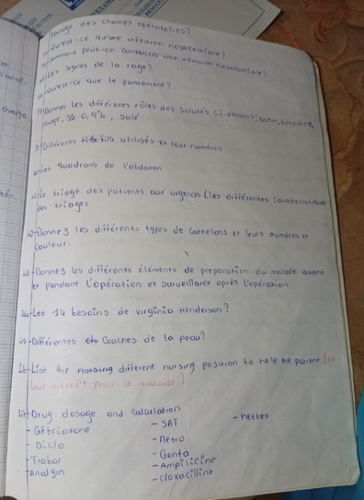 des champs opératoires?
Qu'est-ce qu'une infection nosocomiale?
Comment peut-on contracter une infection nosocomiale?
Les signes de la rage?
Qu'est-ce que le pansement?
Donner les différents rôles des solutés ci-dessous:
rouge, SS 0,9%, salé
Différents fils utilisés et leur numéros
Les quadrans de l'abdomen
Le triage des patients aux urgences (les différentes
des triages
42-Donnez les différents types de cathelons et leurs numéros et
couleur.
43-Donnez les différents éléments de preparation du malade avant
et pendant l'opération et surveillance après l'opération
44-Les 14 besoins de virginia Henderson?
45-Différentes Couches de la peau?
46-List the nursing different nursing position to help the patient (et
leur interêt pour le malade)
47-Drug dosage and calculation
- Ceftriaxone
- Diclo
- Trabar
- Analgin
- SAT
- Metro
- Genta
- Ampilicine
- cloxacilline